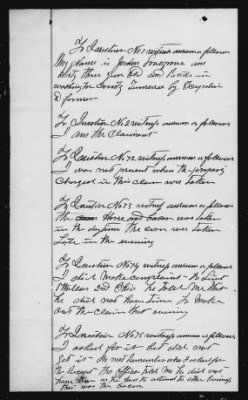 To Question No 1 witness answers as follows
My name is Jordan
thirty three years old and reside in
Washington County Tennessee by occupation
a farmer
To Question No 2 witness answers as follows
I am the Claimant
To Question No 72 witness answers as follows
I was not present when the property
Charged in this claim was taken
To Question No 73 witness answers as follows
The was taken
in the day time the corn was taken
Late in the evening
To Question No 74 witness answers as follows
I did make complaint to Lieut
2nd Ohio he told me that
he did not have time to make
out the claim that evening
To Question No 75 witness answers as follows
I asked for it but did not
get it do not remember who I asked for
the officer told me he did not
have time as he had to attend to other business
this was the